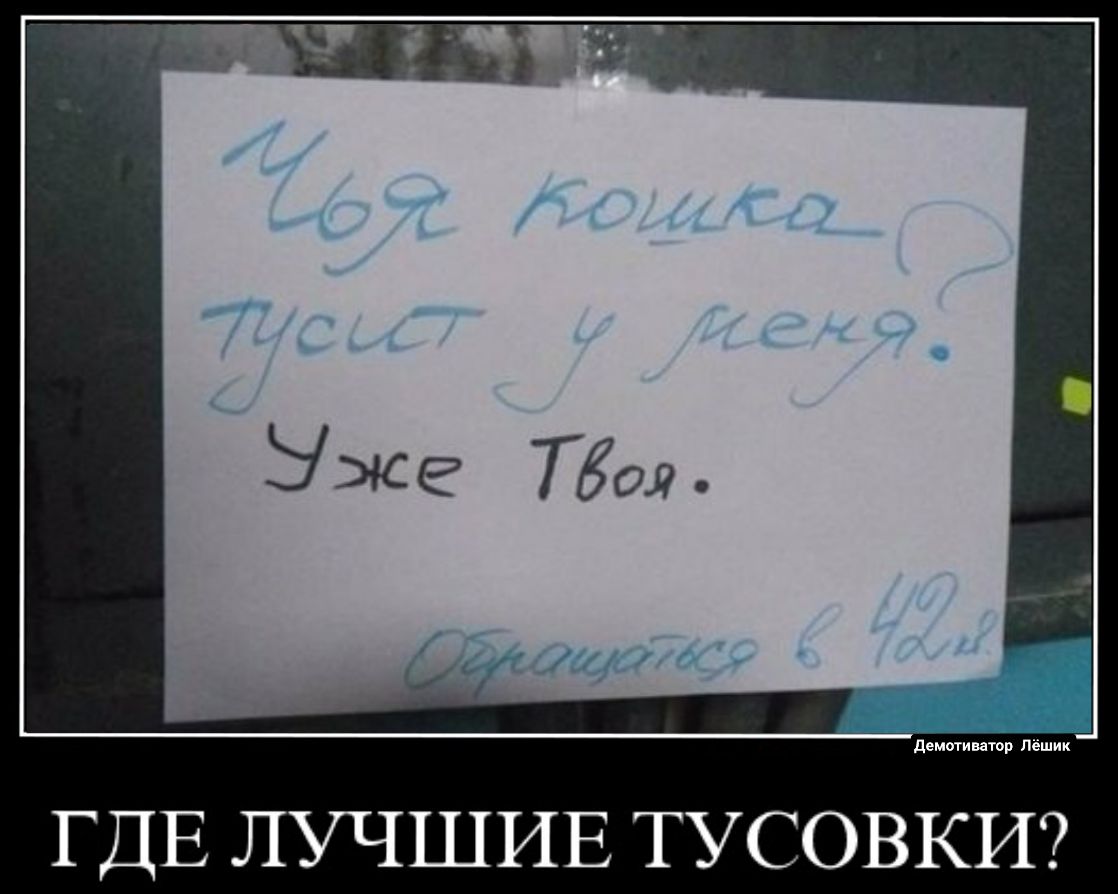 Чья кошка
тусит у меня?
Уже Твоя.
Обращаться в 42 кв.
Демотиватор Лёшик
ГДЕ ЛУЧШИЕ ТУСОВКИ?